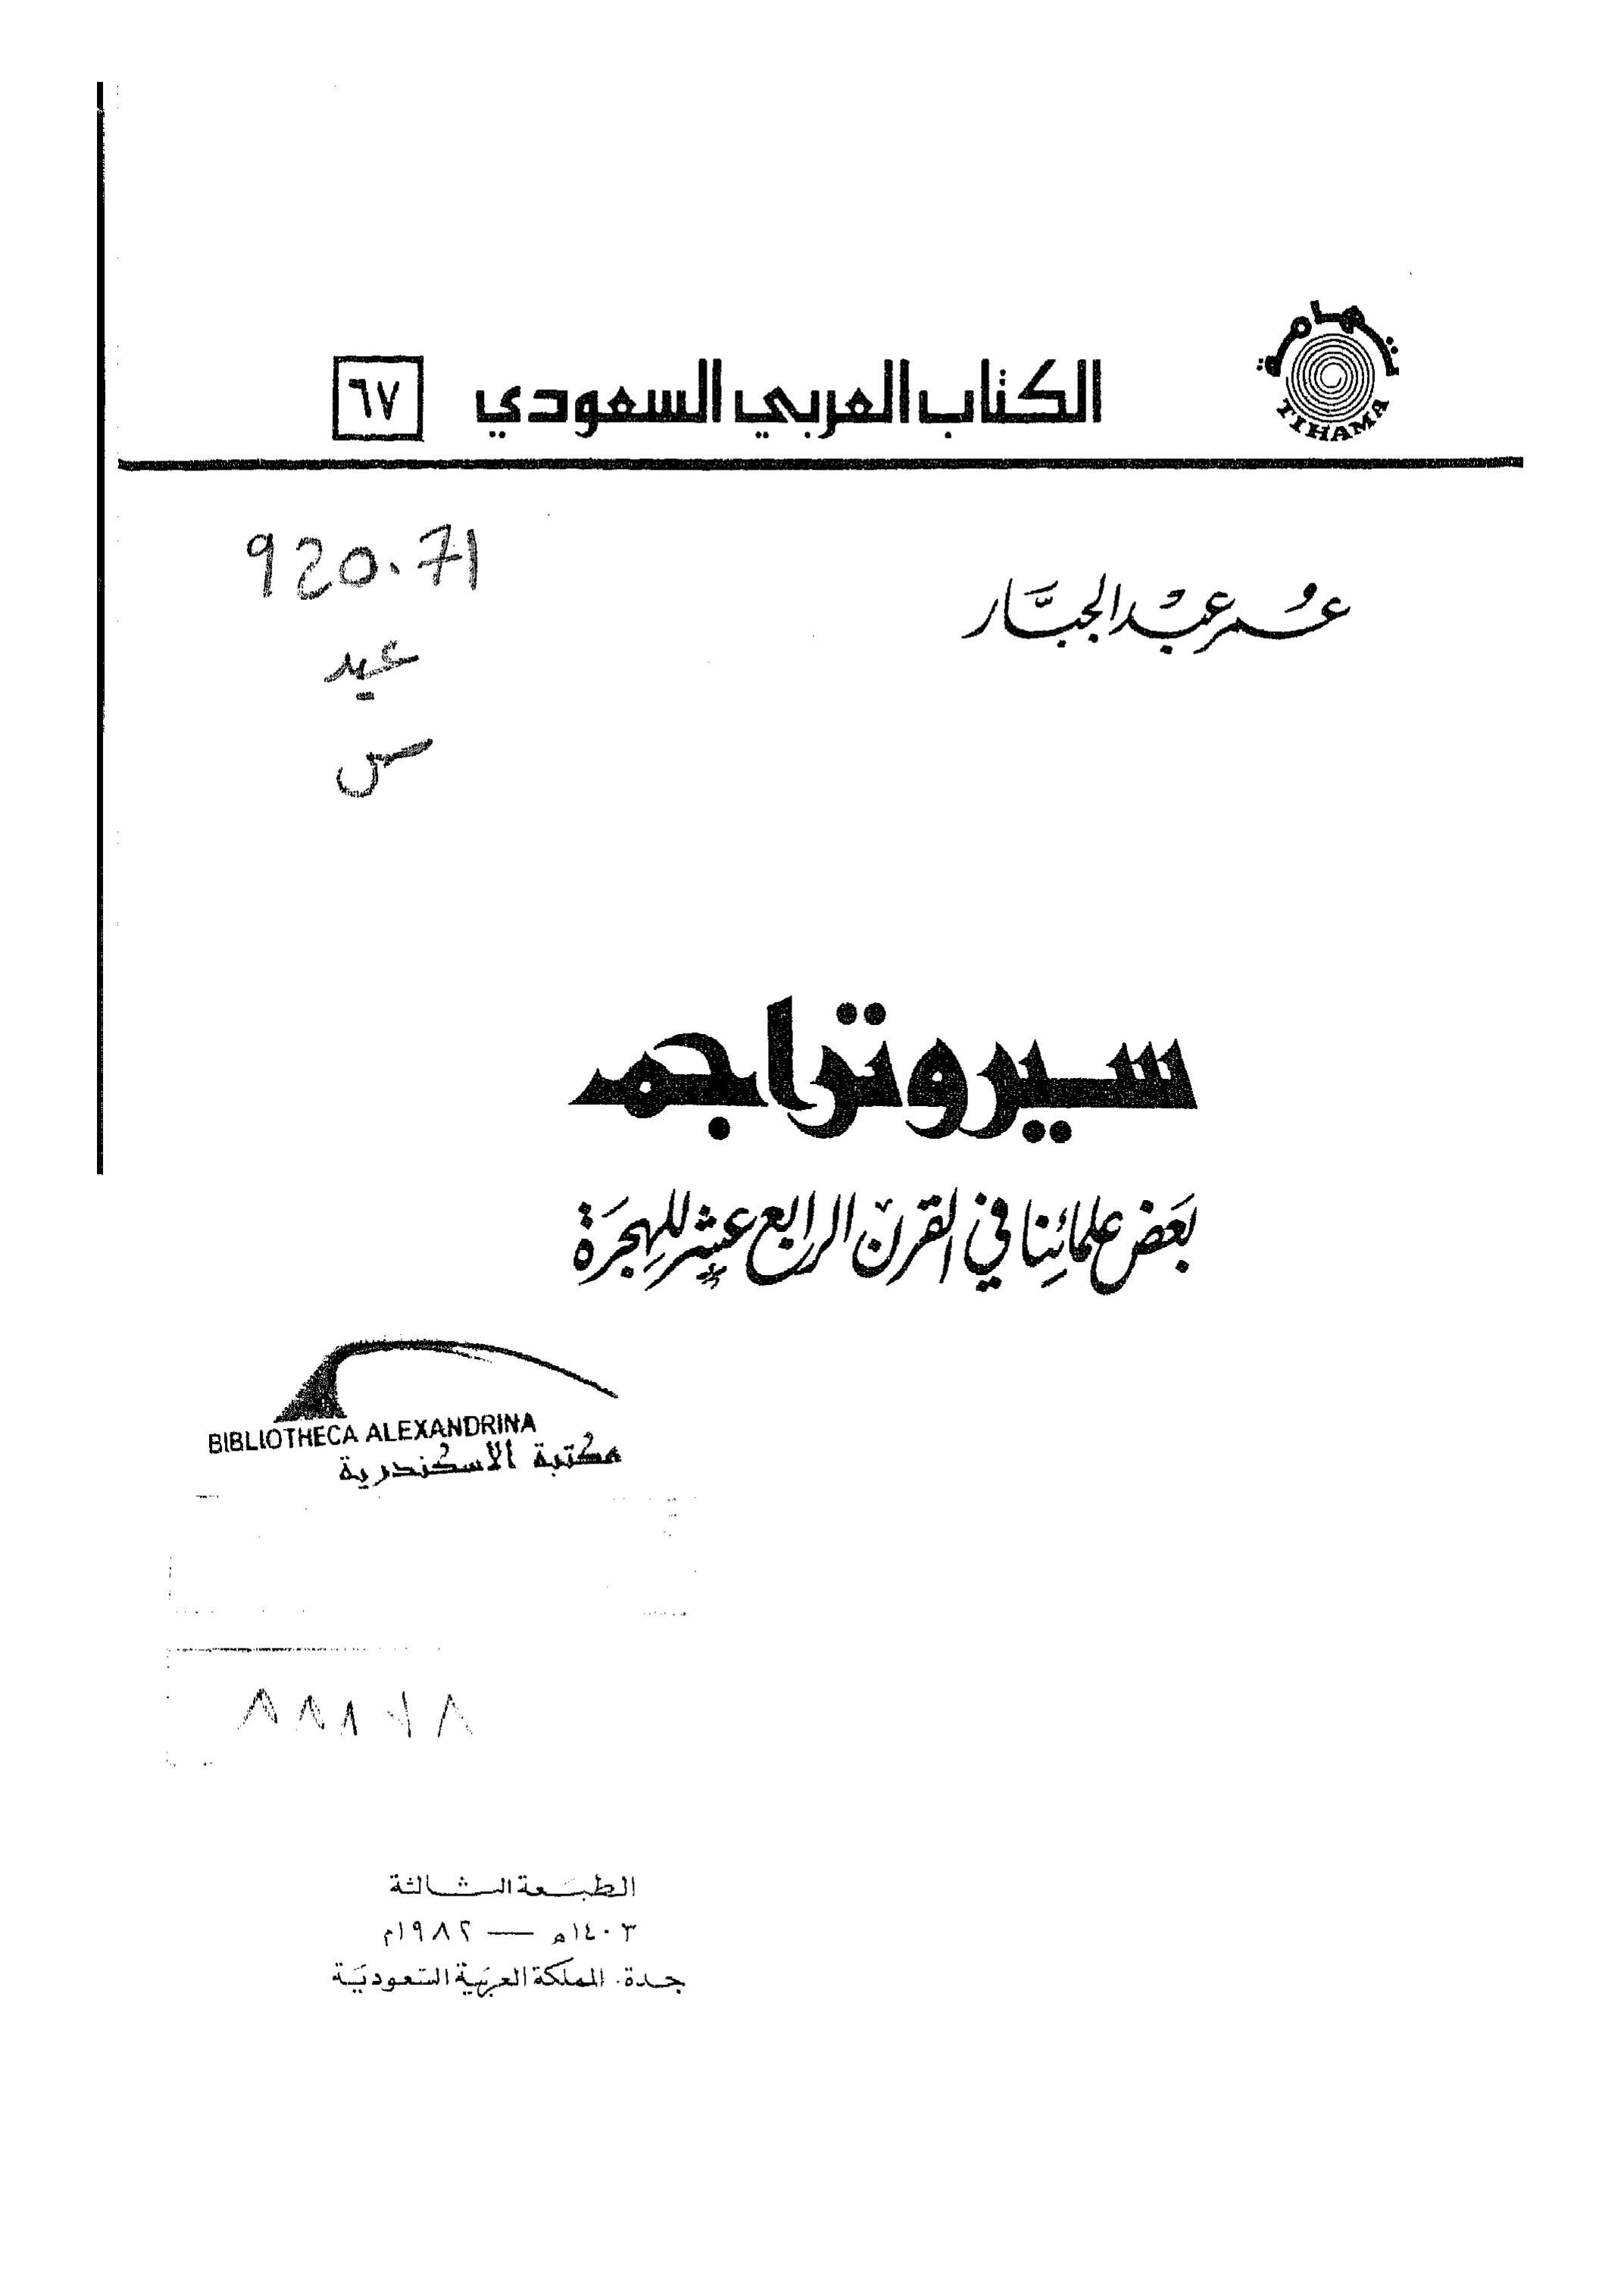 تهامة
TIHAMA
الكتاب العربي السعودي ٦٧
عمر عبد الجبار
920.71
عبد
س
سير وتراجم
بعض علمائنا في القرن الرابع عشر للهجرة
BIBLIOTHECA ALEXANDRINA
مكتبة الاسكندرية
الطبعة الثالثة
١٤٠٣ه — ١٩٨٢م
جدة. المملكة العربية السعودية